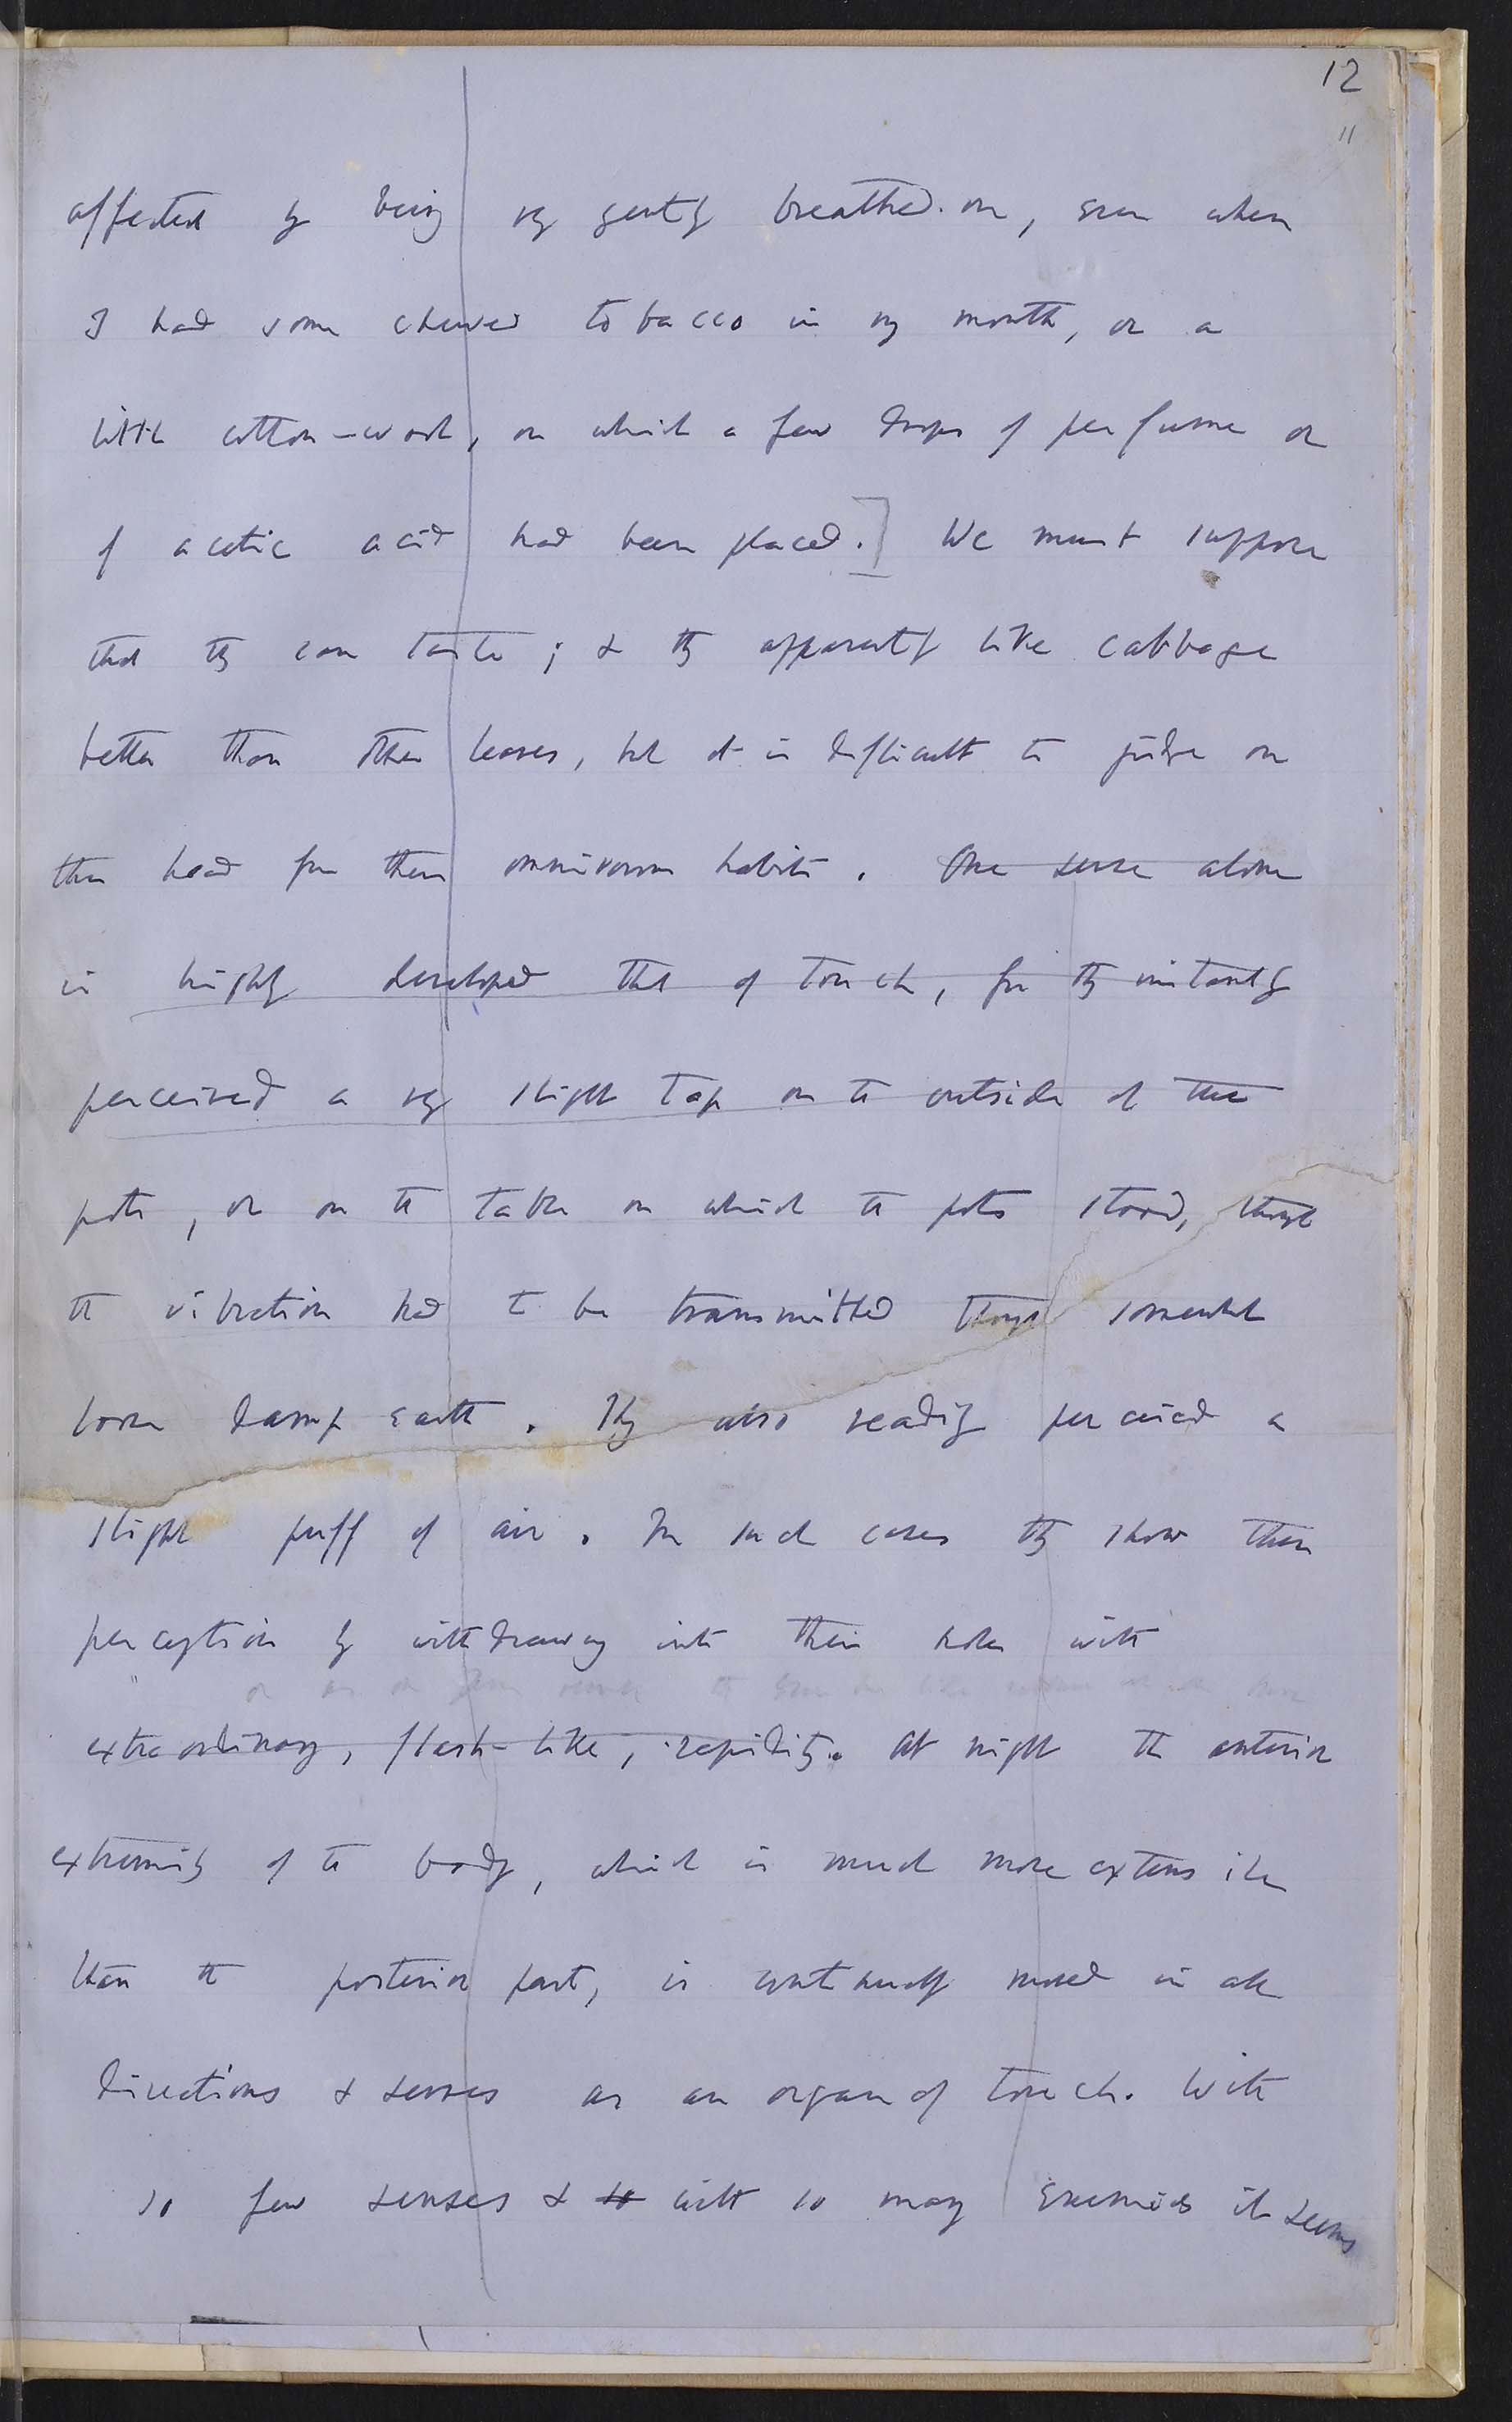 12
11
affected by being very gently breathed on, even when
I had some chewed tobacco in my mouth, or a
little cotton-wool, on which a few drops of perfume or
of acetic acid had been placed.] We must suppose
that they can taste; & they apparently like cabbage
better than other leaves, but it is difficult to judge on
this head from their omnivorous habits. One sense alone
is highly developed that of touch, for they instantly
perceived a very slight tap on the outside of the
pots, or on the table on which the pots stood, though
the vibration had to be transmitted through somewhat
loose damp earth. They also readily perceived a
slight puff of air. In such cases they show their
perception by withdrawing into their holes with
extraordinary, flash-like, rapidity. At night the anterior
extremity of the body, which is much more extensile
than the posterior part, is continually moved in all
directions & serves as an organ of touch. With
so few senses & so with so many enemies it seems